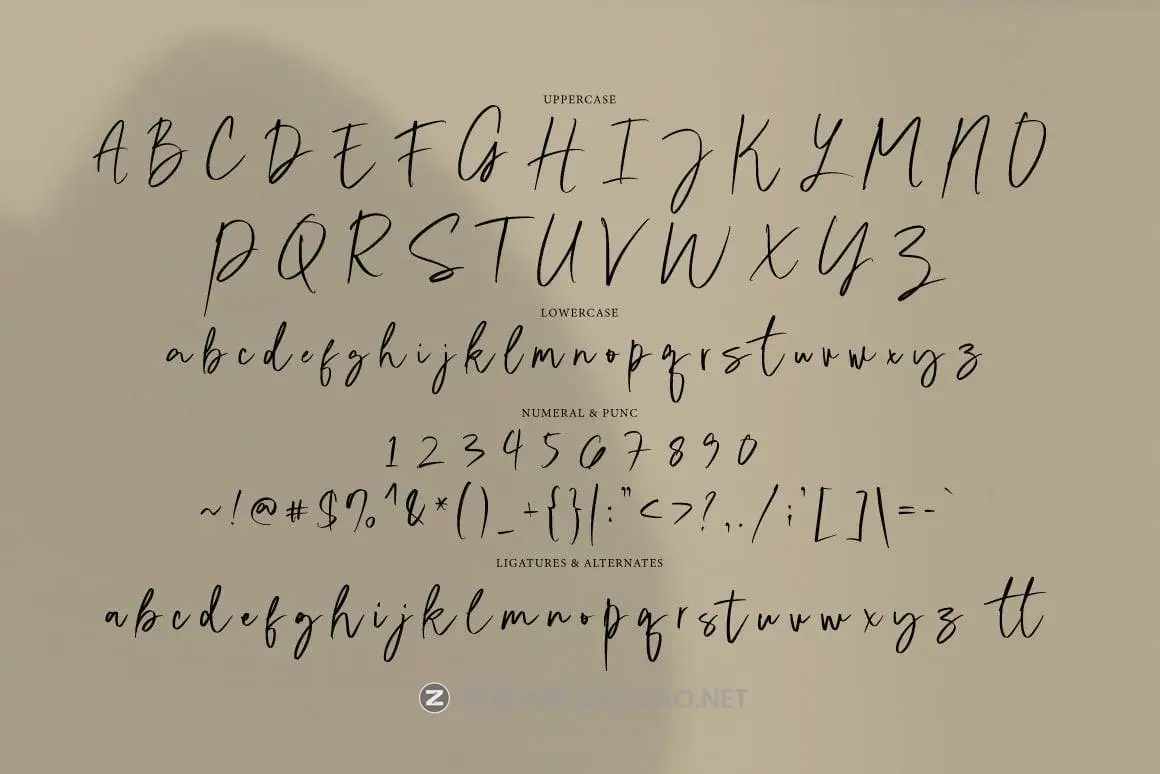 UPPERCASE
A B C D E F G H I J K L M N O
P Q R S T U V W X Y Z
LOWERCASE
a b c d e f g h i j k l m n o p q r s t u v w x y z
NUMERAL & PUNC
1 2 3 4 5 6 7 8 9 0
~ ! @ # $ % ^ & * ( ) _ + { } | : " < > ? , . / ; ' [ ] \ = - `
LIGATURES & ALTERNATES
a b c d e f g h i j k l m n o p q r s t u v w x y z tt
Z